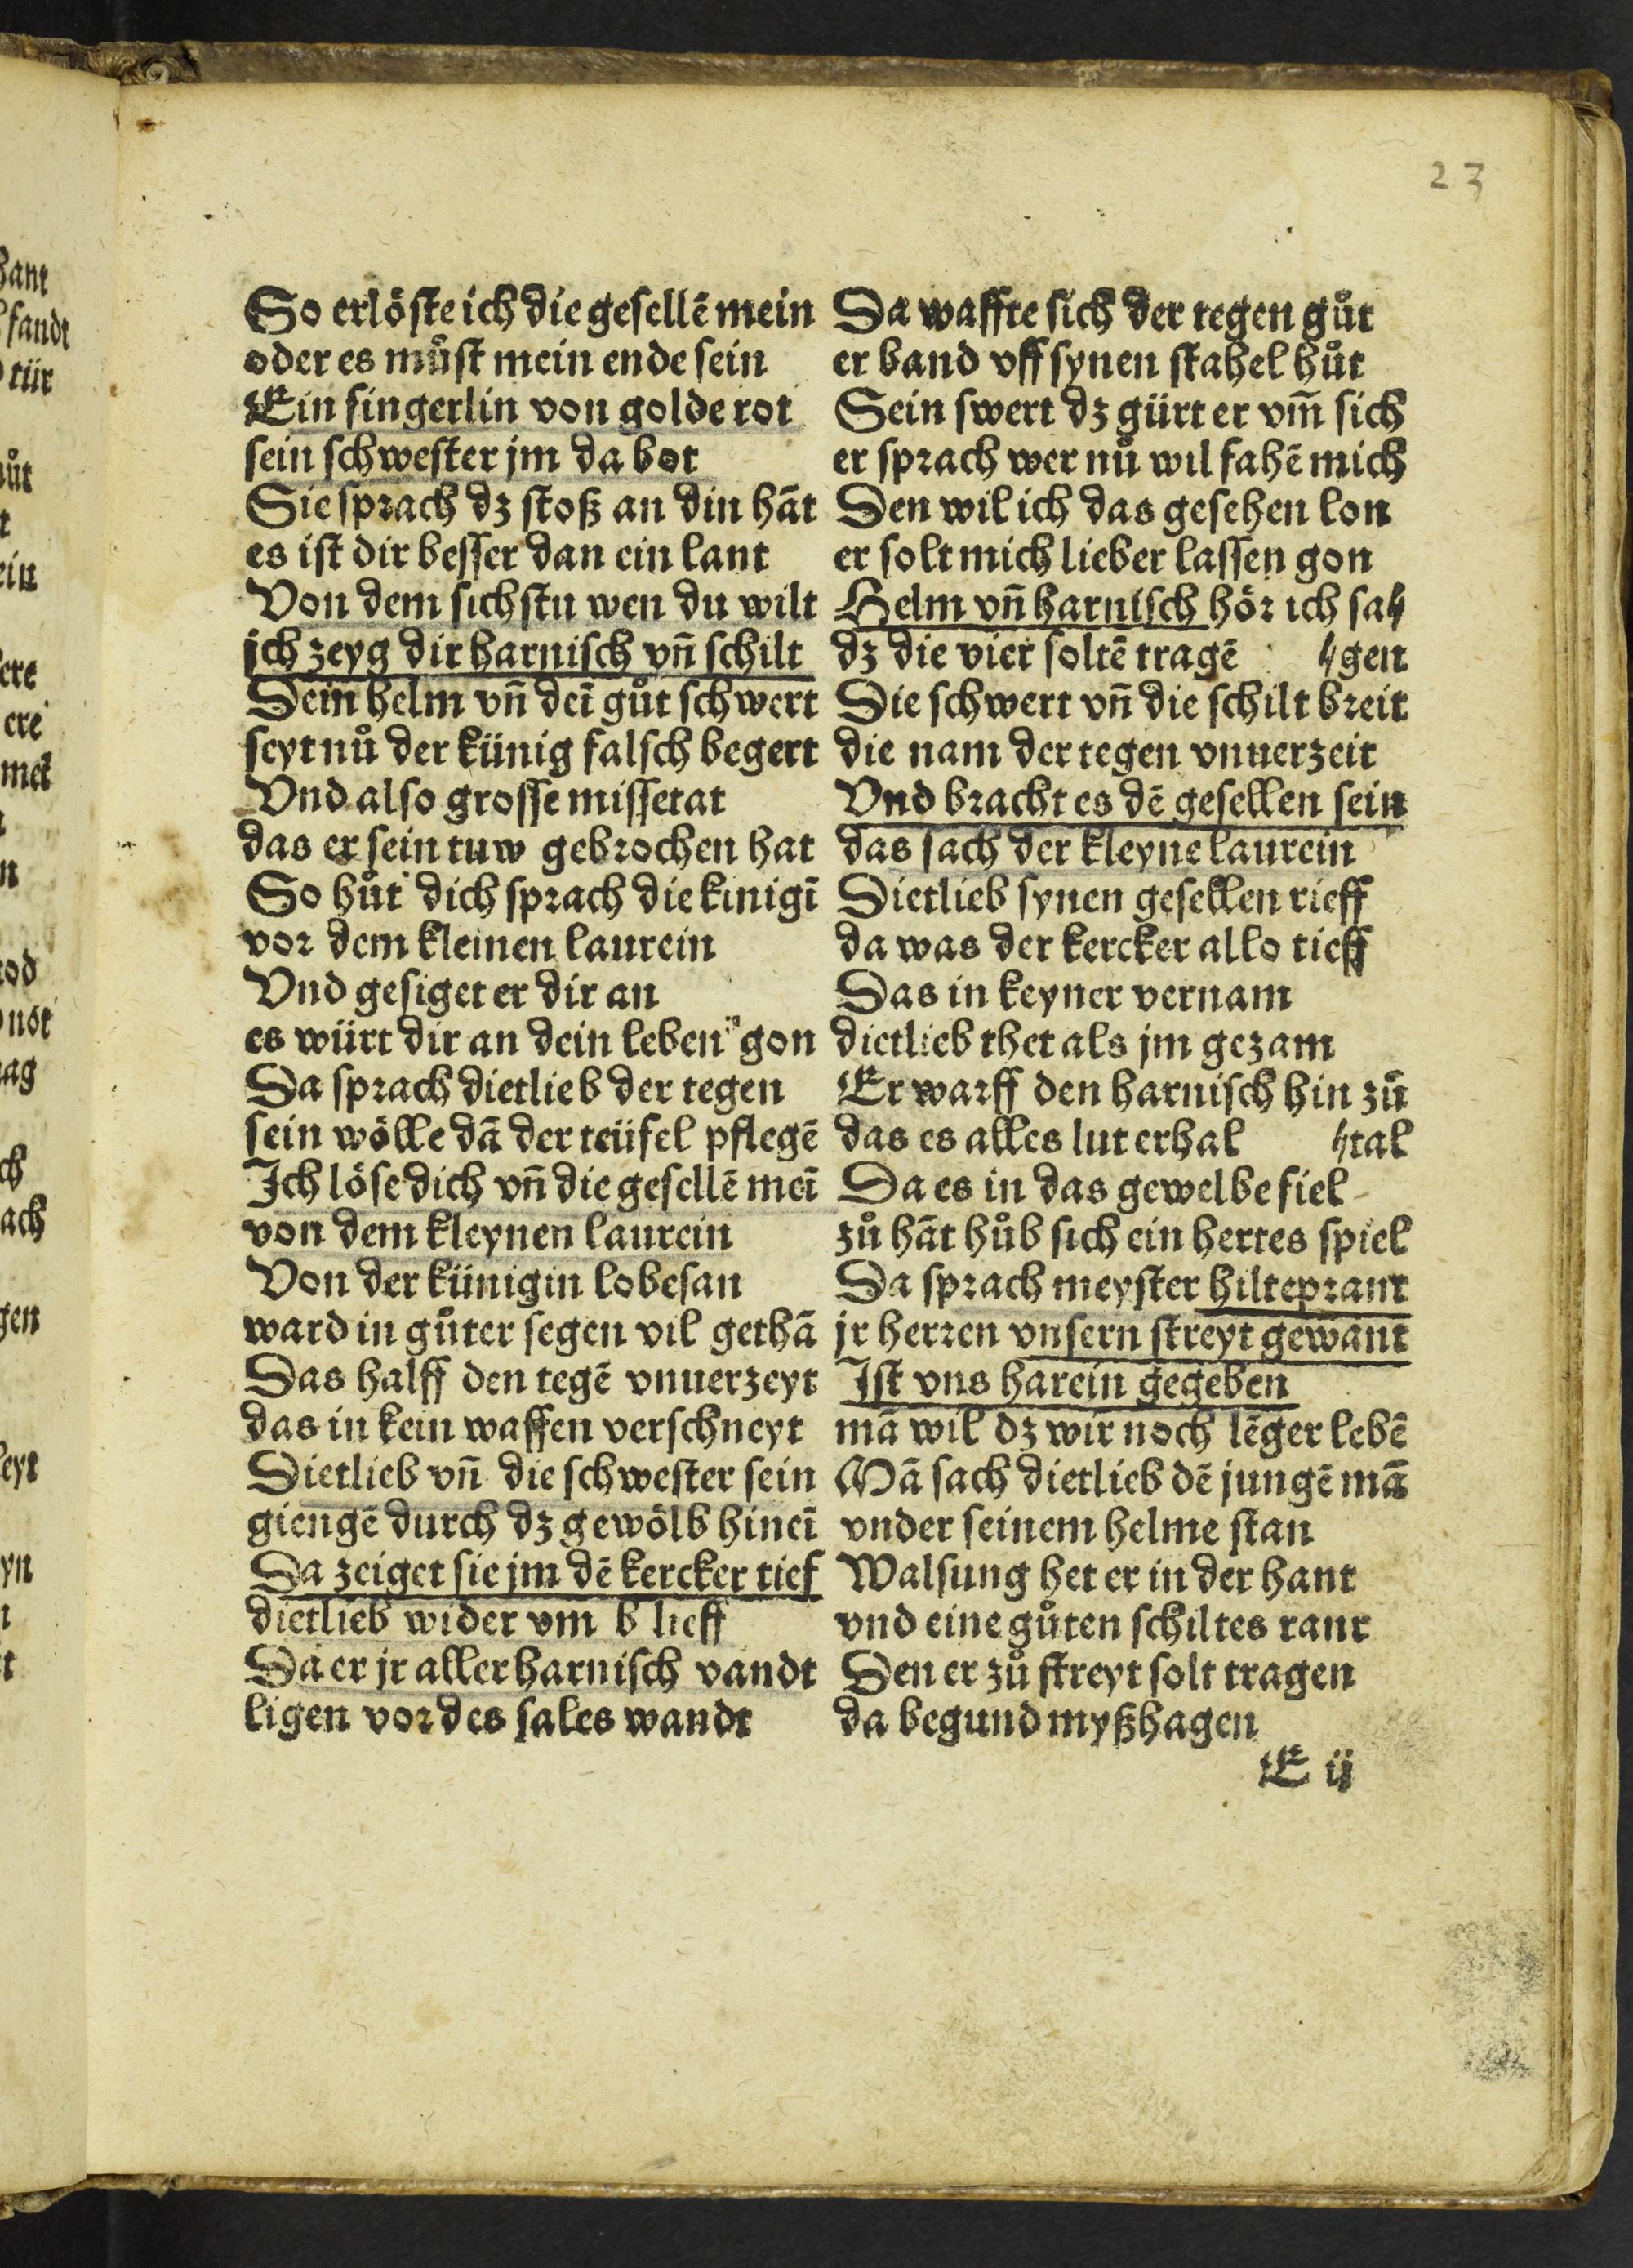 23
So erlöste ich die gesellē mein
oder es můst mein ende sein
Ein fingerlin von golde rot
sein schwester jm da bot
Sie sprach dz stoß an din hāt
es ist dir besser dan ein lant
Von dem sichstu wen du wilt
jch zeyg dir harnisch vñ schilt
Dein helm vñ deī gůt schwert
seyt nů der künig falsch begert
Vnd also grosse missetat
das er sein tuw gebrochen hat
So hůt dich sprach die kinigī
vor dem kleinen laurein
Vnd gesiget er dir an
es würt dir an dein leben gon
Da sprach dietlieb der tegen
sein wölle dā der teüfel pflegē
Ich löse dich vñ die gesellē meī
von dem kleynen laurein
Von der künigin lobesan
ward in gůter segen vil gethā
Das halff den tegē vnuerzeyt
das in kein waffen verschneyt
Dietlieb vñ die schwester sein
giengē durch dz gewölb hineī
Da zeiget sie jm dē kercker tief
dietlieb wider vm b lieff
Da er jr aller harnisch vandt
ligen vor des sales wandt
Da waffte sich der tegen gůt
er band vff synen stahel hůt
Sein swert dz gürt er vm̄ sich
er sprach wer nů wil fahē mich
Den wil ich das gesehen lon
er solt mich lieber lassen gon
Helm vñ harnisch hör ich sa//
dz die vier soltē tragē //gen
Die schwert vñ die schilt breit
die nam der tegen vnuerzeit
Vnd bracht es dē gesellen sein
das sach der kleyne laurein
Dietlieb synen gesellen rieff
da was der kercker allo tieff
Das in keyner vernam
dietlieb thet als jm gezam
Er warff den harnisch hin zů
das es alles lut erhal //tal
Da es in das gewelbe fiel
zů hāt hůb sich ein hertes spiel
Da sprach meyster hilteprant
jr herren vnsern streyt gewant
Ist vns harein gegeben
mā wil dz wir noch lēger lebē
Mā sach dietlieb dē jungē mā
vnder seinem helme stan
Walsung het er in der hant
vnd eine gůten schiltes rant
Den er zů streyt solt tragen
da begund myßhagen
E ij